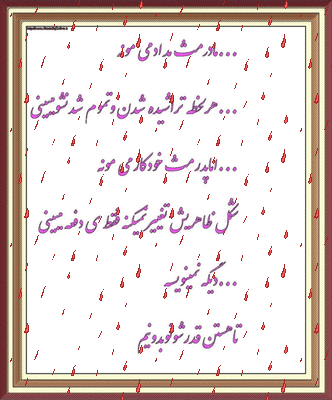 ...مادر مث مداد می مونه
...هر لحظه تراشیده شدن و تموم شدنشو میبینی
...اما پدر مث خودکار می مونه
شکل ظاهریش تغییر نمیکنه فقط ی دفعه میبینی
...دیگه نمینویسه
تا هستن قدرشونو بدونیم